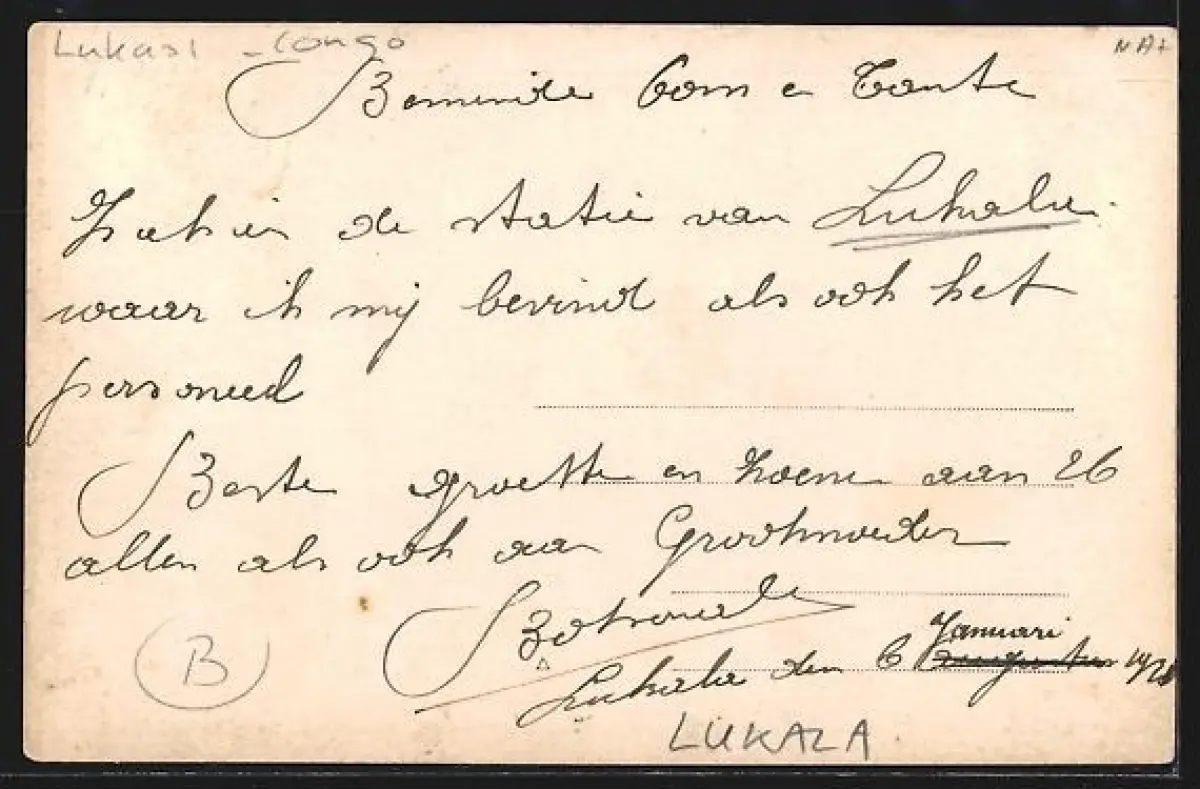 Lukasi - Congo
NAX
Beminde Oom e Tante
de statie van Lukala.
waar ik mij bevind als ook het
personeel
Beste groette en zoene aan
allen als ook aan Grootmoeder
Lukala den 6 Januari augustus
B
LUKALA